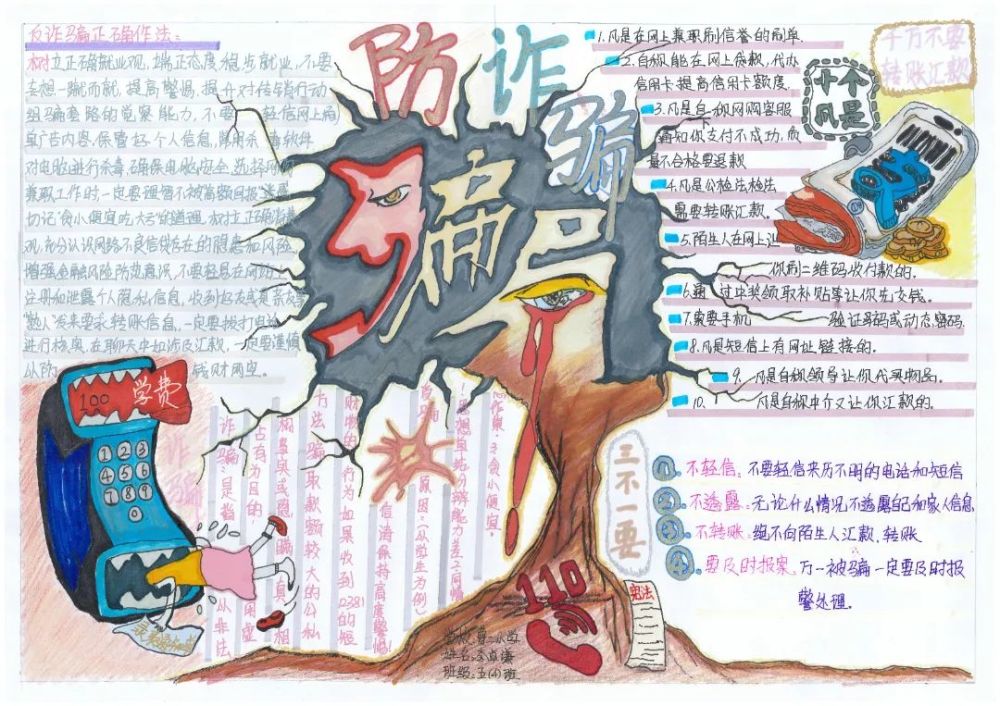 反诈骗正确作法:
树立正确就业观,端正态度,稳步就业,不要
妄想一蹴而就,提高警惕,提升对传销行动
组骗套路的觉察能力,不要轻信网上商
真广告内容,保管好个人信息,常用杀毒软件
对电脑进行杀毒,确保电脑安全,选择网络
兼职工作时一定要理智不被高额回报
切记"贪小便宜吃大亏"的道理,树立正确消费
观,充分认识网络不良信贷存在的隐患和风险,
增强金融风险防范意识,不要轻易在网站
注册和泄露个人隐私信息,收到好友或真亲友等
"熟人"发来要求转账信息,一定要拨打电话
进行核实,在聊天中如涉及汇款,一定要谨慎
从防 钱财两空。
防诈骗
骗局
1.凡是在网上兼职刷信誉的刷单.
2.自称能在网上贷款,代办
信用卡提高信用卡额度.
3.凡是自称网购客服
通知你支付不成功,质
量不合格要退款
4.凡是公检法检法
需要转账汇款.
5.陌生人在网上让
你刷二维码收付款的.
6.通过中奖领取补贴等让你先交钱.
7.索要手机 验证码或动态密码.
8.凡是短信上有网址链接的.
9. 凡是自称领导让你代买物品.
10. 凡是自称中介又让你汇款的.
千万不要
转账汇款
十个
凡是
100
学费
1 2 3
4 5 6
7 8 9
0
诈骗
诈骗:是指
占有为目的
相
方法骗取款额较大的公私
财物的行为如果收到12381的短
信请保持高度警惕!
原因:(以学生为例)
思想单纯分辨能力差2同情
3贪小便宜.
三不一要
1.不轻信,不要轻信来历不明的电话和短信
2.不透露:无论什么情况不透露自己和家人信息
3.不转账:绝不向陌生人汇款、转账
4.要及时报案,万一被骗一定要及时报
警处理。
110
宪法
学校:第二小学
姓名:
班级:五(4)班